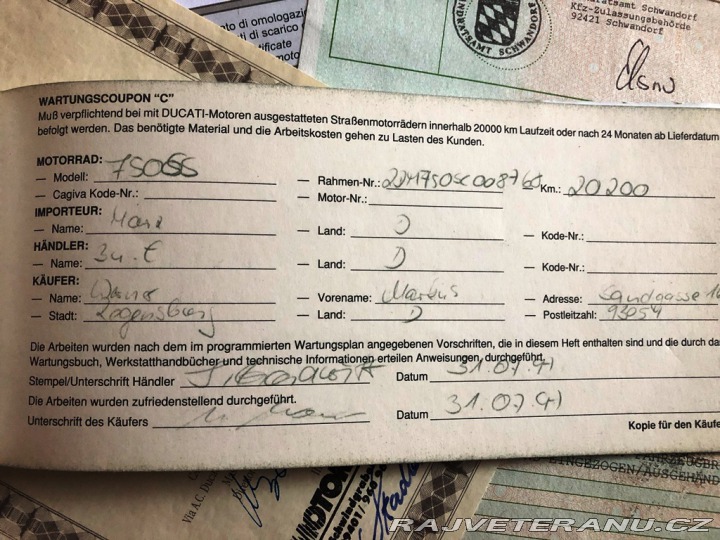 to di omologazio
ti di scarico
tificate
moto
ratsamt Schwandorf
Kfz-Zulassungsbehörde
92421 Schwandorf
RATSAMT SCHWANDORF
WARTUNGSCOUPON “C”
Muß verpflichtend bei mit DUCATI-Motoren ausgestatteten Straßenmotorrädern innerhalb 20000 km Laufzeit oder nach 24 Monaten ab Lieferdatum
befolgt werden. Das benötigte Material und die Arbeitskosten gehen zu Lasten des Kunden.
MOTORRAD:
— Modell: 750SS — Rahmen-Nr.: Km.: 20200
— Cagiva Kode-Nr.: — Motor-Nr.:
IMPORTEUR:
— Name: — Land: D — Kode-Nr.:
HÄNDLER:
— Name: — Land: D — Kode-Nr.:
KÄUFER:
— Name: — Vorename: Markus — Adresse: Sandgasse
— Stadt: Regensburg — Land: D — Postleitzahl: 93059
Die Arbeiten wurden nach dem im programmierten Wartungsplan angegebenen Vorschriften, die in diesem Heft enthalten sind und die durch das
Wartungsbuch, Werkstatthandbücher und technische Informationen erteilen Anweisungen, durchgeführt.
Stempel/Unterschrift Händler Datum 31.07.
Die Arbeiten wurden zufriedenstellend durchgeführt.
Unterschrift des Käufers Datum 31.07.
Kopie für den Käufer
Via A.C.
MOTOR
EINGEZOGEN/AUSGEHÄND
RAJVETERANU.CZ